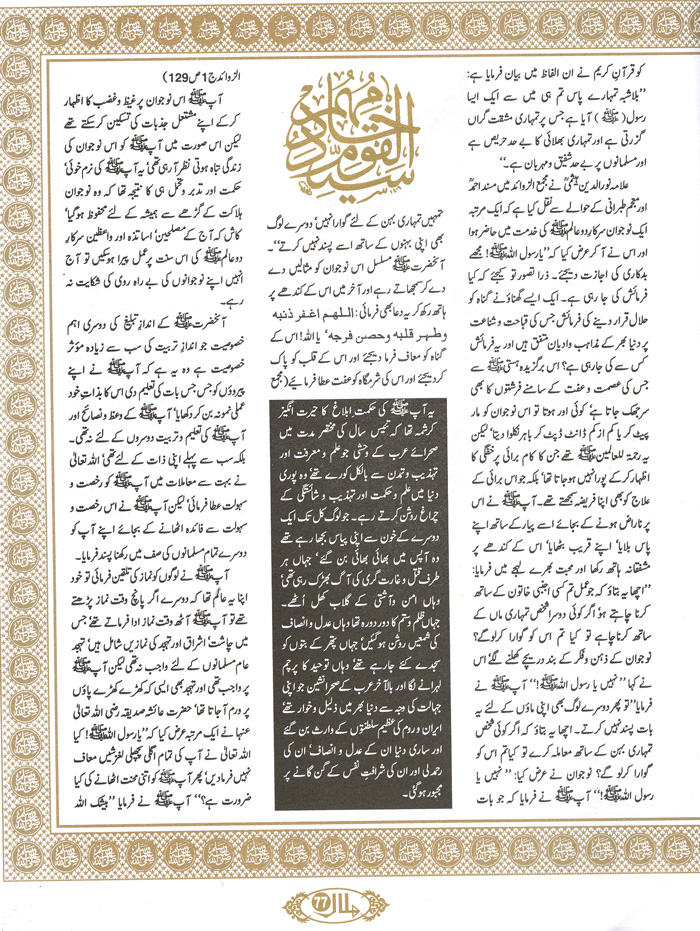 کو قرآنِ کریم نے ان الفاظ میں بیان فرمایا ہے:
’’بلاشبہ تمہارے پاس تم ہی میں سے ایک ایسا
رسول(ﷺ) آیا ہے جس پر تمہاری مشقت گراں
گزرتی ہے اور تمہاری بھلائی کا بے حد حریص ہے
اور مسلمانوں پر بے حد شفیق و مہربان ہے۔‘‘
علامہ نورالدین ہیثمیؒ نے مجمع الزوائد میں مسند احمدؒ اور
معجم طبرانی کے حوالے سے نقل کیا ہے کہ ایک مرتبہ
ایک نوجوان سرکارِ دو عالمﷺ کی خدمت میں حاضر ہوا
اور اس نے آ کر عرض کیا کہ ’’یارسول اللہﷺ! مجھے
بدکاری کی اجازت دیجئے۔ ذرا تصور تو کیجئے کہ کیا
فرمائش کی جا رہی ہے۔ ایک ایسے گھناؤنے گناہ کو
حلال قرار دینے کی فرمائش جس کی قباحت و شناعت
پر دنیا بھر کے مذاہب و ادیان متفق ہیں اور یہ فرمائش
کس سے کی جا رہی ہے؟ اس برگزیدہ ہستیﷺ سے
جس کی عصمت و عفت کے سامنے فرشتوں کا بھی
سر جھک جاتا ہے‘ کوئی اور ہوتا تو اس نوجوان کو مار
پیٹ کر یا کم از کم ڈانٹ ڈپٹ کر باہر نکلوا دیتا‘ لیکن
یہ رحمۃ للعالمینﷺ تھے جن کا کام برائی پر خفگی کا
اظہار کر کے پورا نہیں ہو جاتا تھا‘ بلکہ جو اس برائی کے
علاج کو بھی اپنا فریضہ سمجھتے تھے۔ آپﷺ نے اس
پر ناراض ہونے کے بجائے اسے پیار کے ساتھ اپنے
پاس بلایا‘ اپنے قریب بٹھایا‘ اس کے کندھے پر
مشفقانہ ہاتھ رکھا اور محبت بھرے لہجے میں فرمایا:
’’اچھا یہ بتاؤ کہ جو عمل تم کسی اجنبی خاتون کے ساتھ
کرنا چاہتے ہو‘ اگر کوئی دوسرا شخص تمہاری ماں کے
ساتھ کرنا چاہے تو کیا تم اس کو گوارا کرلو گے؟
نوجوان کے ذہن و فکر کے بند دریچے کھلنے لگے‘ اس
نے کہا ’’نہیں یا رسول اللہﷺ!‘‘ آپﷺ نے
فرمایا’’تو پھر دوسرے لوگ بھی اپنی ماؤں کے لئے یہ
بات پسند نہیں کرتے۔ اچھا یہ بتاؤ کہ اگر کوئی شخص
تمہاری بہن کے ساتھ معاملہ کرے تو کیا تم اس کو
گوارا کر لو گے؟ نوجوان نے عرض کیا: ’’نہیں یا
رسول اللہﷺ!‘‘ آپﷺ نے فرمایا کہ جو بات
سید القوم خادمہم
تمہیں تمہاری بہن کے لئے گوارا نہیں‘ دوسرے لوگ
بھی اپنی بہنوں کے ساتھ اسے پسند نہیں کرتے‘‘۔
آنحضرتﷺ مسلسل اس نوجوان کو مثالیں دے
دے کر سمجھاتے رہے اور آخر میں اس کے کندھے پر
ہاتھ رکھ کر یہ دعا بھی فرمائی: اللہم اغفر ذنبہ
وطہر قلبہ وحصن فرجہ‘ یا اللہ! اس کے
گناہ کو معاف فرما دیجئے اور اس کے قلب کو پاک
کر دیجئے اور اس کی شرمگاہ کو عفت عطا فرمائیے(مجمع
یہ آپﷺ کی حکمت ابلاغ کا حیرت انگیز
کرشمہ تھا کہ تیئیس سال کی مختصر مدت میں
صحرائے عرب کے وحشی جو علم و معرفت اور
تہذیب و تمدن سے بالکل کورے تھے وہ پوری
دنیا میں علم و حکمت اور تہذیب و شائستگی کے
چراغ روشن کرتے رہے۔ جو لوگ کل تک ایک
دوسرے کے خون سے اپنی پیاس بجھا رہے تھے
وہ آپس میں بھائی بھائی بن گئے‘ جہاں ہر
طرف قتل و غارت گری کی آگ بھڑک رہی تھی‘
وہاں امن و آشتی کے گلاب کھل اٹھے۔
جہاں ظلم و ستم کا دور دورہ تھا وہاں عدل و انصاف
کی شمعیں روشن ہو گئیں‘ جہاں پتھر کے بتوں کو
سجدے کئے جا رہے تھے وہاں توحید کا پرچم
لہرانے لگا اور بالآخر عرب کے صحرا نشین جو اپنی
جہالت کی وجہ سے دنیا بھر میں ذلیل و خوار تھے
ایران و روم کی عظیم سلطنتوں کے وارث بن گئے
اور ساری دنیا ان کے عدل و انصاف‘ ان کی
رحمدلی اور ان کی شرافتِ نفس کے گن گانے پر
مجبور ہو گئی۔
الزوائد ج1ص129)
آپﷺ اس نوجوان پر غیظ و غضب کا اظہار
کر کے اپنے مشتعل جذبات کی تسکین کر سکتے تھے
لیکن اس صورت میں آپﷺ کو اس نوجوان کی
زندگی تباہ ہوتی نظر آ رہی تھی‘ یہ آپﷺ کی نرم خوئی‘
حکمت اور تدبر و تحمل ہی کا نتیجہ تھا کہ وہ نوجوان
ہلاکت کے گڑھے سے ہمیشہ کے لئے محفوظ ہو گیا‘
کاش کہ آج کے مصلحین‘ اساتذہ اور واعظین سرکارِ
دو عالمﷺ کی اس سنت پر عمل پیرا ہو سکیں تو آج
انہیں اپنے نوجوانوں کی بے راہ روی کی شکایت نہ
رہے۔
آنحضرتﷺ کے اندازِ تبلیغ کی دوسری اہم
خصوصیت جو انداز تربیت کی سب سے زیادہ مؤثر
خصوصیت ہے وہ یہ ہے کہ آپﷺ نے اپنے
پیروؤں کو جس جس بات کی تعلیم دی اس کا بذات خود
عملی نمونہ بن کر دکھایا‘ آپﷺ کے وعظ و نصائح اور
آپﷺ کی تعلیم و تربیت دوسروں کے لئے نہ تھی۔
بلکہ سب سے پہلے اپنی ذات کے لئے تھی‘ اللہ تعالیٰ
نے بہت سے معاملات میں آپﷺ کو رخصت و
سہولت عطا فرمائی‘ لیکن آپﷺ نے اس رخصت و
سہولت سے فائدہ اٹھانے کے بجائے اپنے آپ کو
دوسرے تمام مسلمانوں کی صف میں رکھنا پسند فرمایا۔
آپﷺ نے لوگوں کو نماز کی تلقین فرمائی تو خود
اپنا یہ عالم تھا کہ دوسرے اگر پانچ وقت نماز پڑھتے
تھے تو آپﷺ آٹھ وقت نماز ادا فرماتے تھے جس
میں چاشت‘ اشراق اور تہجد کی نمازیں شامل ہیں‘ تہجد
عام مسلمانوں کے لئے واجب نہ تھی لیکن آپﷺ
پر واجب تھی اور تہجد بھی ایسی کہ کھڑے کھڑے پاؤں
پر ورم آ جاتا تھا‘ حضرت عائشہ صدیقہ رضی اللہ تعالیٰ
عنہا نے ایک مرتبہ عرض کیا کہ ’’یا رسول اللہﷺ! کیا
اللہ تعالیٰ نے آپ کی تمام اگلی پچھلی لغزشیں معاف
نہیں فرما دیں‘ پھر آپﷺ کو اتنی محنت اٹھانے کی کیا
ضرورت ہے؟‘‘ آپﷺ نے فرمایا ’’بیشک اللہ
ہلال 77